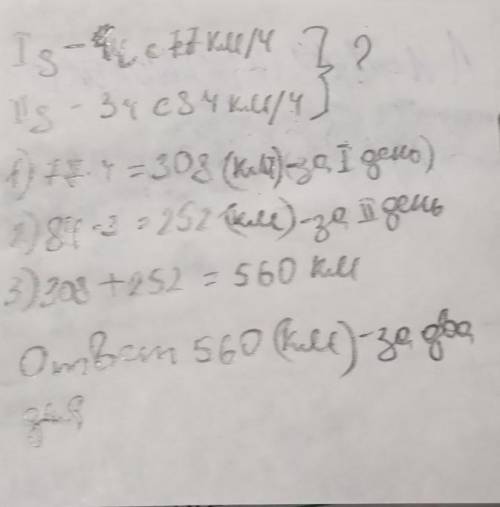 I s - 4ч с 77 км/ч } ?
II s - 3ч с 84 км/ч }
1) 77·4 = 308 (км) - за I день)
2) 84·3 = 252 (км) - за II день
3) 308 + 252 = 560 км
Ответ 560 (км) - за два
дня